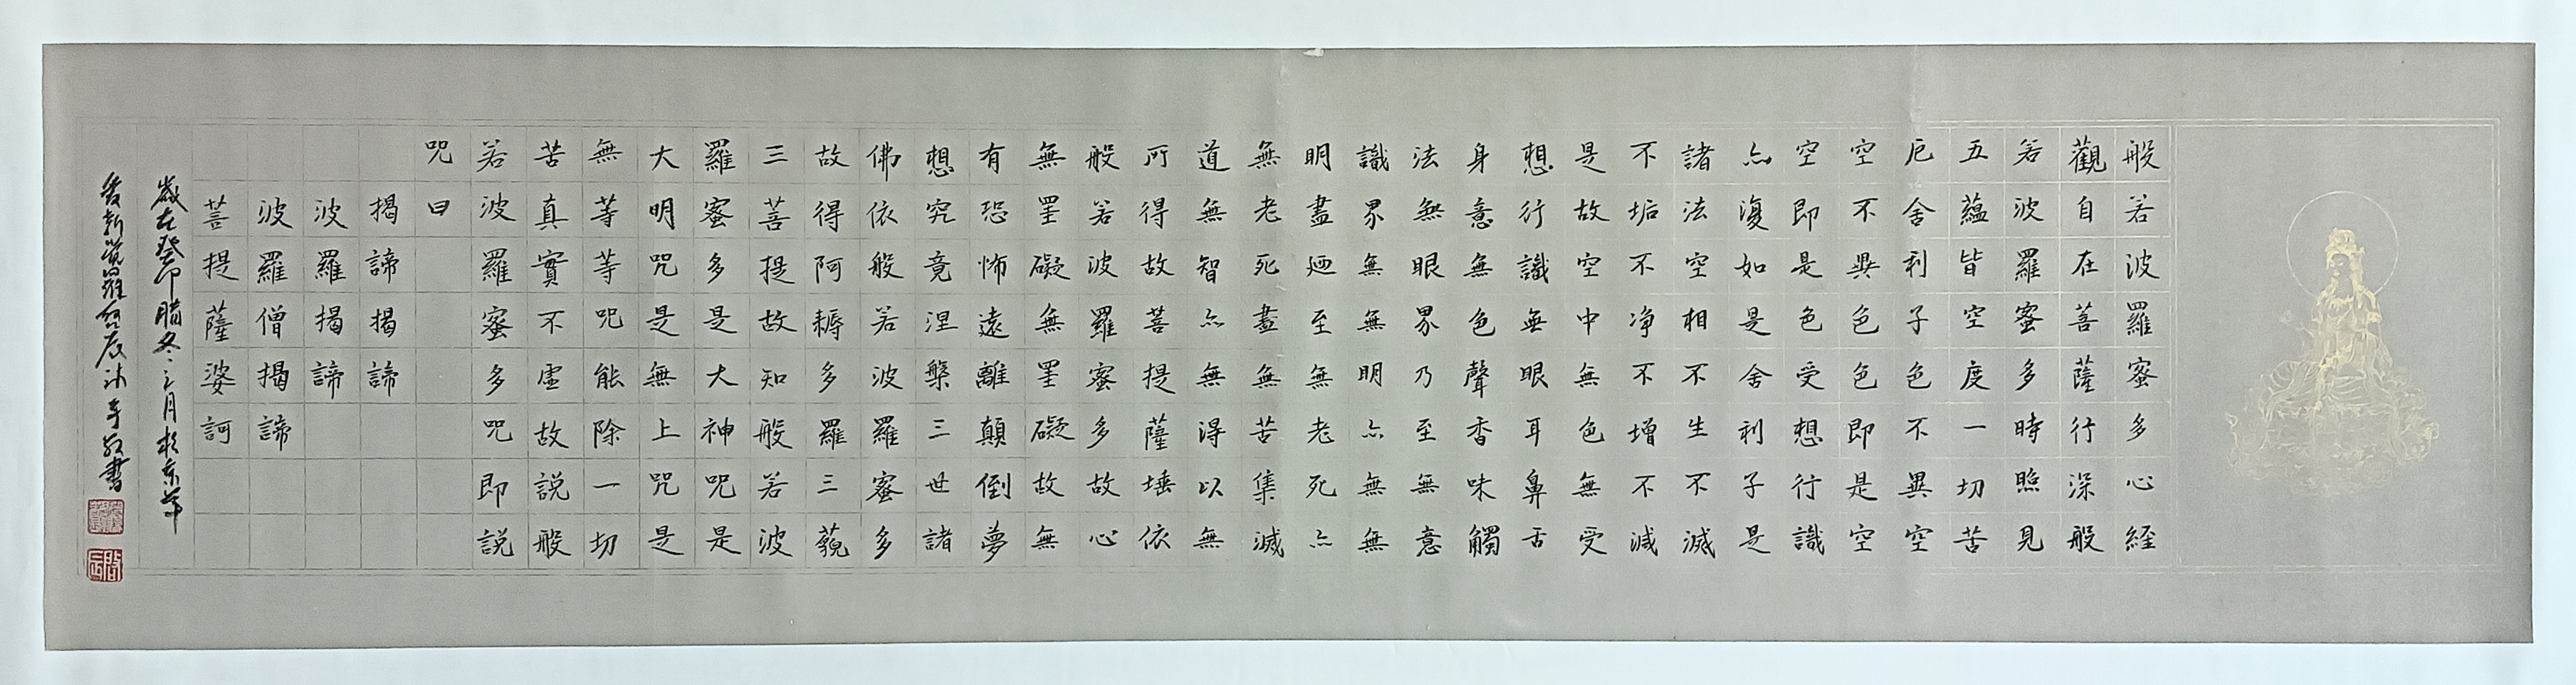 般若波羅蜜多心経
觀自在菩薩行深般
若波羅蜜多時照見
五蘊皆空度一切苦
厄舍利子色不異空
空不異色色即是空
空即是色受想行識
亦復如是舍利子是
諸法空相不生不滅
不垢不净不增不減
是故空中無色無受
想行識無眼耳鼻舌
身意無色聲香味觸
法無眼界乃至無意
識界無無明亦無無
明盡廼至無老死亦
無老死盡無苦集滅
道無智亦無得以無
所得故菩提薩埵依
般若波羅蜜多故心
無罣礙無罣礙故無
有恐怖遠離顛倒夢
想究竟涅槃三世諸
佛依般若波羅蜜多
故得阿耨多羅三藐
三菩提故知般若波
羅蜜多是大神咒是
大明咒是無上咒是
無等等咒能除一切
苦真實不虛故說般
若波羅蜜多咒即說
咒曰
揭諦揭諦
波羅揭諦
波羅僧揭諦
菩提薩婆訶
歲在癸卯臘冬之月於京華
愛新覺羅 沐手敬書